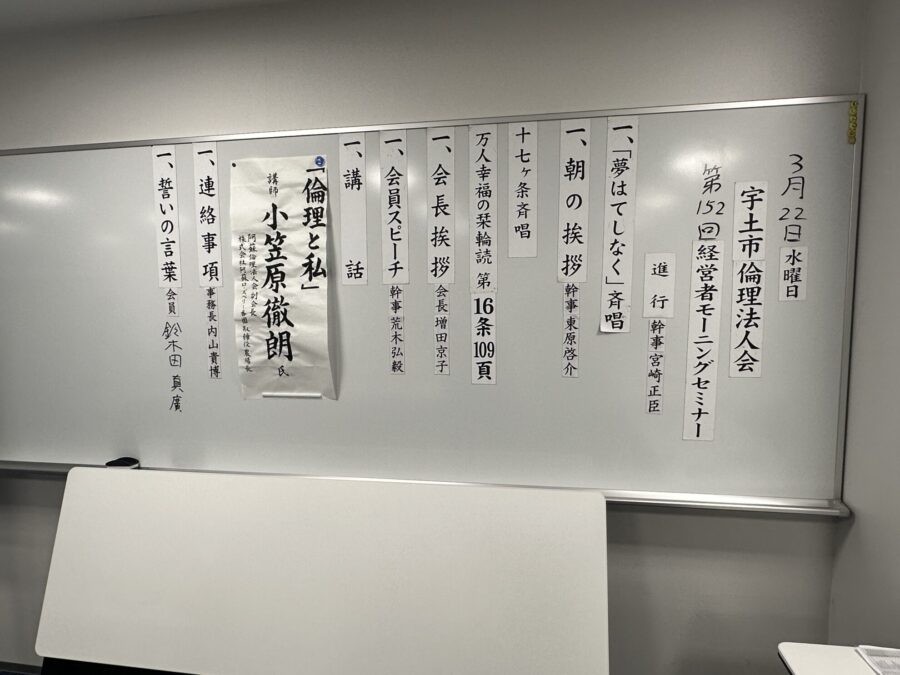 3月22日水曜日
宇土市倫理法人会
第152回経営者モーニングセミナー
進行 幹事 宮崎正臣
一、「夢はてしなく」斉唱
一、朝の挨拶 幹事 東原啓介
十七ヶ条斉唱
万人幸福の栞輪読 第16条109頁
一、会長挨拶 会長 増田京子
一、会員スピーチ 幹事 荒木弘毅
一、講話
「倫理と私」
講師 小笠原徹朗 氏
一、連絡事項 事務長 内山貴博
一、誓いの言葉 会員 鈴木田真廣